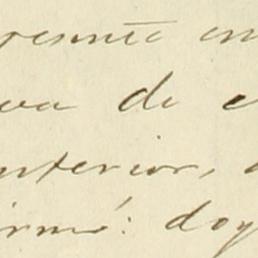 presente en
va de e
anterior, a
firmó: doy